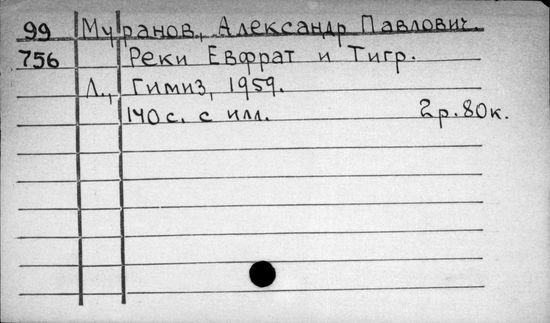 99 Муранов, Александр Павлович.
756 Реки Евфрат и Тигр.
Л., Гимиз, 1959.
140 с. с илл. 2р. 80к.